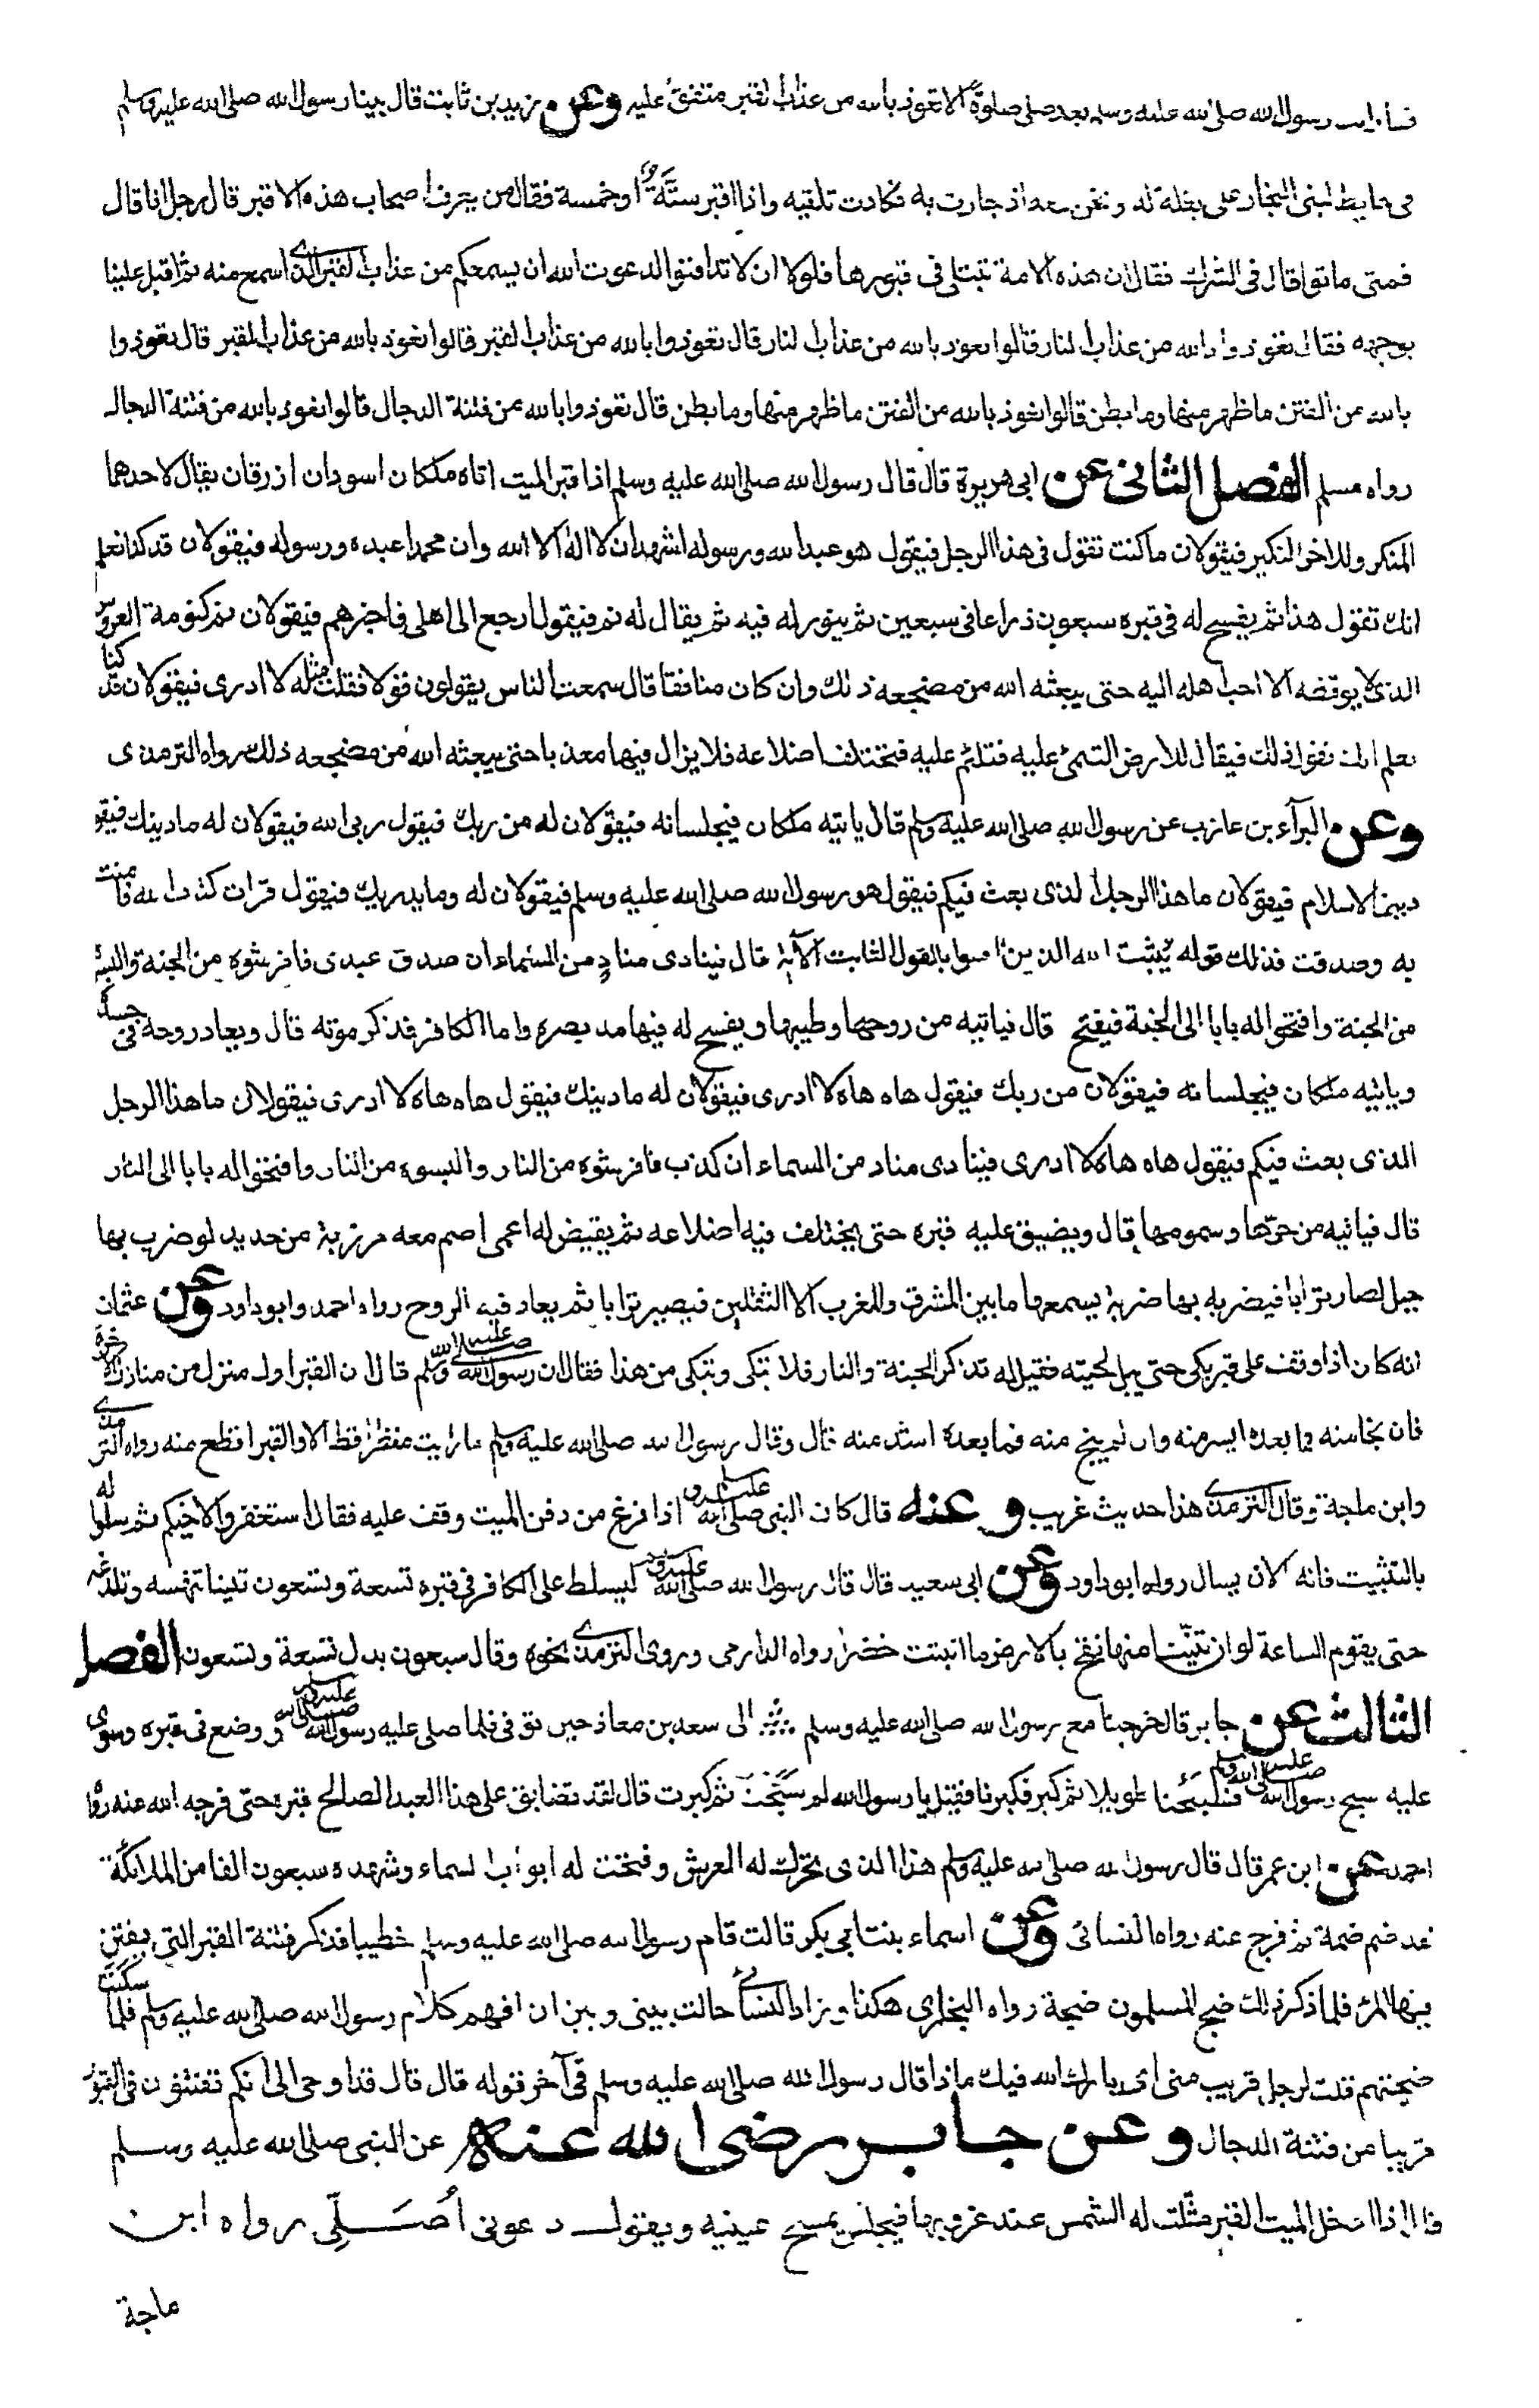 فما رايت رسول الله صلى الله عليه وسلم بعد صلى صلوة الا تعوذ بالله من عذاب القبر متفق عليه وعن زيد بن ثابت قال بينا رسول الله صلى الله عليه وسلم
فى حايط لبنى النجار على بغلة له ونحن معه اذ حارت به فكادت تلقيه واذا اقبر ستة او خمسة فقال من يعرف اصحاب هذه الاقبر قال رجل انا قال
فمتى ماتوا قال فى الشرك فقال ان هذه الامة تبتلى فى قبورها فلولا ان لا تدافنوا لدعوت الله ان يسمعكم من عذاب القبر الذى اسمع منه ثم اقبل علينا
بوجهه فقال تعوذوا بالله من عذاب النار قالوا نعوذ بالله من عذاب النار قال تعوذوا بالله من عذاب القبر قالوا نعوذ بالله من عذاب القبر قال تعوذوا
بالله من الفتن ما ظهر منها وما بطن قالوا نعوذ بالله من الفتن ما ظهر منها وما بطن قال تعوذوا بالله من فتنة الدجال قالوا نعوذ بالله من فتنة الدجال
رواه مسلم الفصل الثانى عن ابى هريرة قال قال رسول الله صلى الله عليه وسلم اذا قبر الميت اتاه ملكان اسودان ازرقان يقال لاحدهما
المنكر وللاخر النكير فيقولان ما كنت تقول فى هذا الرجل فيقول هو عبد الله ورسوله اشهد ان لا اله الا الله وان محمدا عبده ورسوله فيقولان قد كنا نعلم
انك تقول هذا ثم يفسح له فى قبره سبعون ذراعا فى سبعين ثم ينور له فيه ثم يقال له نم فيقول ارجع الى اهلى فاخبرهم فيقولان نم كنومة العروس
الذى لا يوقضه الا احب اهله اليه حتى يبعثه الله من مضجعه ذلك وان كان منافقا قال سمعت الناس يقولون قولا فقلت مثله لا ادرى فيقولان قد كنا
نعلم انك تقول ذلك فيقال للارض التمئ عليه فتلتئم عليه فتختلف اضلاعه فلا يزال فيها معذبا حتى يبعثه الله من مضجعه ذلك رواه الترمذى
وعن البرآء بن عازب عن رسول الله صلى الله عليه وسلم قال ياتيه ملكان فيجلسانه فيقولان له من ربك فيقول ربى الله فيقولان له ما دينك فيقو
دينى الاسلام فيقولان ما هذا الرجل الذى بعث فيكم فيقول هو رسول الله صلى الله عليه وسلم فيقولان له وما يدريك فيقول قرات كتاب الله فامنت
به وصدقت فذلك قوله يثبت الله الذين امنوا بالقول الثابت الآية قال فينادى مناد من السماء ان صدق عبدى فافرشوه من الجنة والبسو
من الجنة وافتحوا له بابا الى الجنة فيفتح قال فياتيه من روحها وطيبها ويفسح له فيها مد بصره واما الكافر فذكر موته قال ويعاد روحه فى جسده
وياتيه ملكان فيجلسانه فيقولان من ربك فيقول هاه هاه لا ادرى فيقولان له ما دينك فيقول هاه هاه لا ادرى فيقولان ما هذا الرجل
الذى بعث فيكم فيقول هاه هاه لا ادرى فينادى مناد من السماء ان كذب فافرشوه من النار والبسوه من النار وافتحوا له بابا الى النار
قال فياتيه من حرها وسمومها قال ويضيق عليه قبره حتى يختلف فيه اضلاعه ثم يقيض له اعمى اصم معه مرزبة من حديد لو ضرب بها
جبل لصار ترابا فيضربه بها ضربة يسمعها ما بين المشرق والمغرب الا الثقلين فيصير ترابا ثم يعاد فيه الروح رواه احمد وابو داود وعن عثمان
انه كان اذا وقف على قبر بكى حتى يبل لحيته فقيل له تذكر الجنة والنار فلا تبكى وتبكى من هذا فقال ان رسول الله صلى الله عليه وسلم قال ان القبر اول منزل من منازل الاخرة
فان نجا منه فما بعده ايسر منه وان لم ينج منه فما بعده اشد منه قال وقال رسول الله صلى الله عليه وسلم ما رايت منظرا قط الا والقبر افظع منه رواه الترمذى
وابن ماجة وقال الترمذى هذا حديث غريب وعنه قال كان النبى صلى الله عليه وسلم اذا فرغ من دفن الميت وقف عليه فقال استغفروا لاخيكم ثم سلوا له
بالتثبيت فانه الان يسال رواه ابو داود وعن ابى سعيد قال قال رسول الله صلى الله عليه وسلم ليسلط على الكافر فى قبره تسعة وتسعون تنينا تنهسه وتلدغه
حتى يقوم الساعة لو ان تنينا منها نفخ بالارض ما انبتت خضرا رواه الدارمى وروى الترمذى نحوه وقال سبعون بدل تسعة وتسعون الفصل
الثالث عن جابر قال خرجنا مع رسول الله صلى الله عليه وسلم الى سعد بن معاذ حين توفى فلما صلى عليه رسول الله صلى الله عليه وسلم ووضع فى قبره وسوى
عليه سبح رسول الله صلى الله عليه وسلم فسبحنا طويلا ثم كبر فكبرنا فقيل يا رسول الله لم سبحت ثم كبرت قال لقد تضايق على هذا العبد الصالح قبره حتى فرجه الله عنه رواه
احمد عن ابن عمر قال قال رسول الله صلى الله عليه وسلم هذا الذى تحرك له العرش وفتحت له ابواب السماء وشهده سبعون الفا من الملائكة
لقد ضم ضمة ثم فرج عنه رواه النسائى وعن اسماء بنت ابى بكر قالت قام رسول الله صلى الله عليه وسلم خطيبا فذكر فتنة القبر التى يفتتن
فيها المرء فلما ذكر ذلك ضج المسلمون ضجة رواه البخارى هكذا وزاد النسائى حالت بينى وبين ان افهم كلام رسول الله صلى الله عليه وسلم فلما سكنت
ضجتهم قلت لرجل قريب منى اى بارك الله فيك ماذا قال رسول الله صلى الله عليه وسلم فى آخر قوله قال قال قد اوحى الى انكم تفتنون فى القبور
قريبا من فتنة الدجال وعن جابر رضى الله عنه عن النبى صلى الله عليه وسلم
قال اذا ادخل الميت القبر مثلت له الشمس عند غروبها فيجلس يمسح عينيه ويقول دعونى اصلى رواه ابن
ماجة